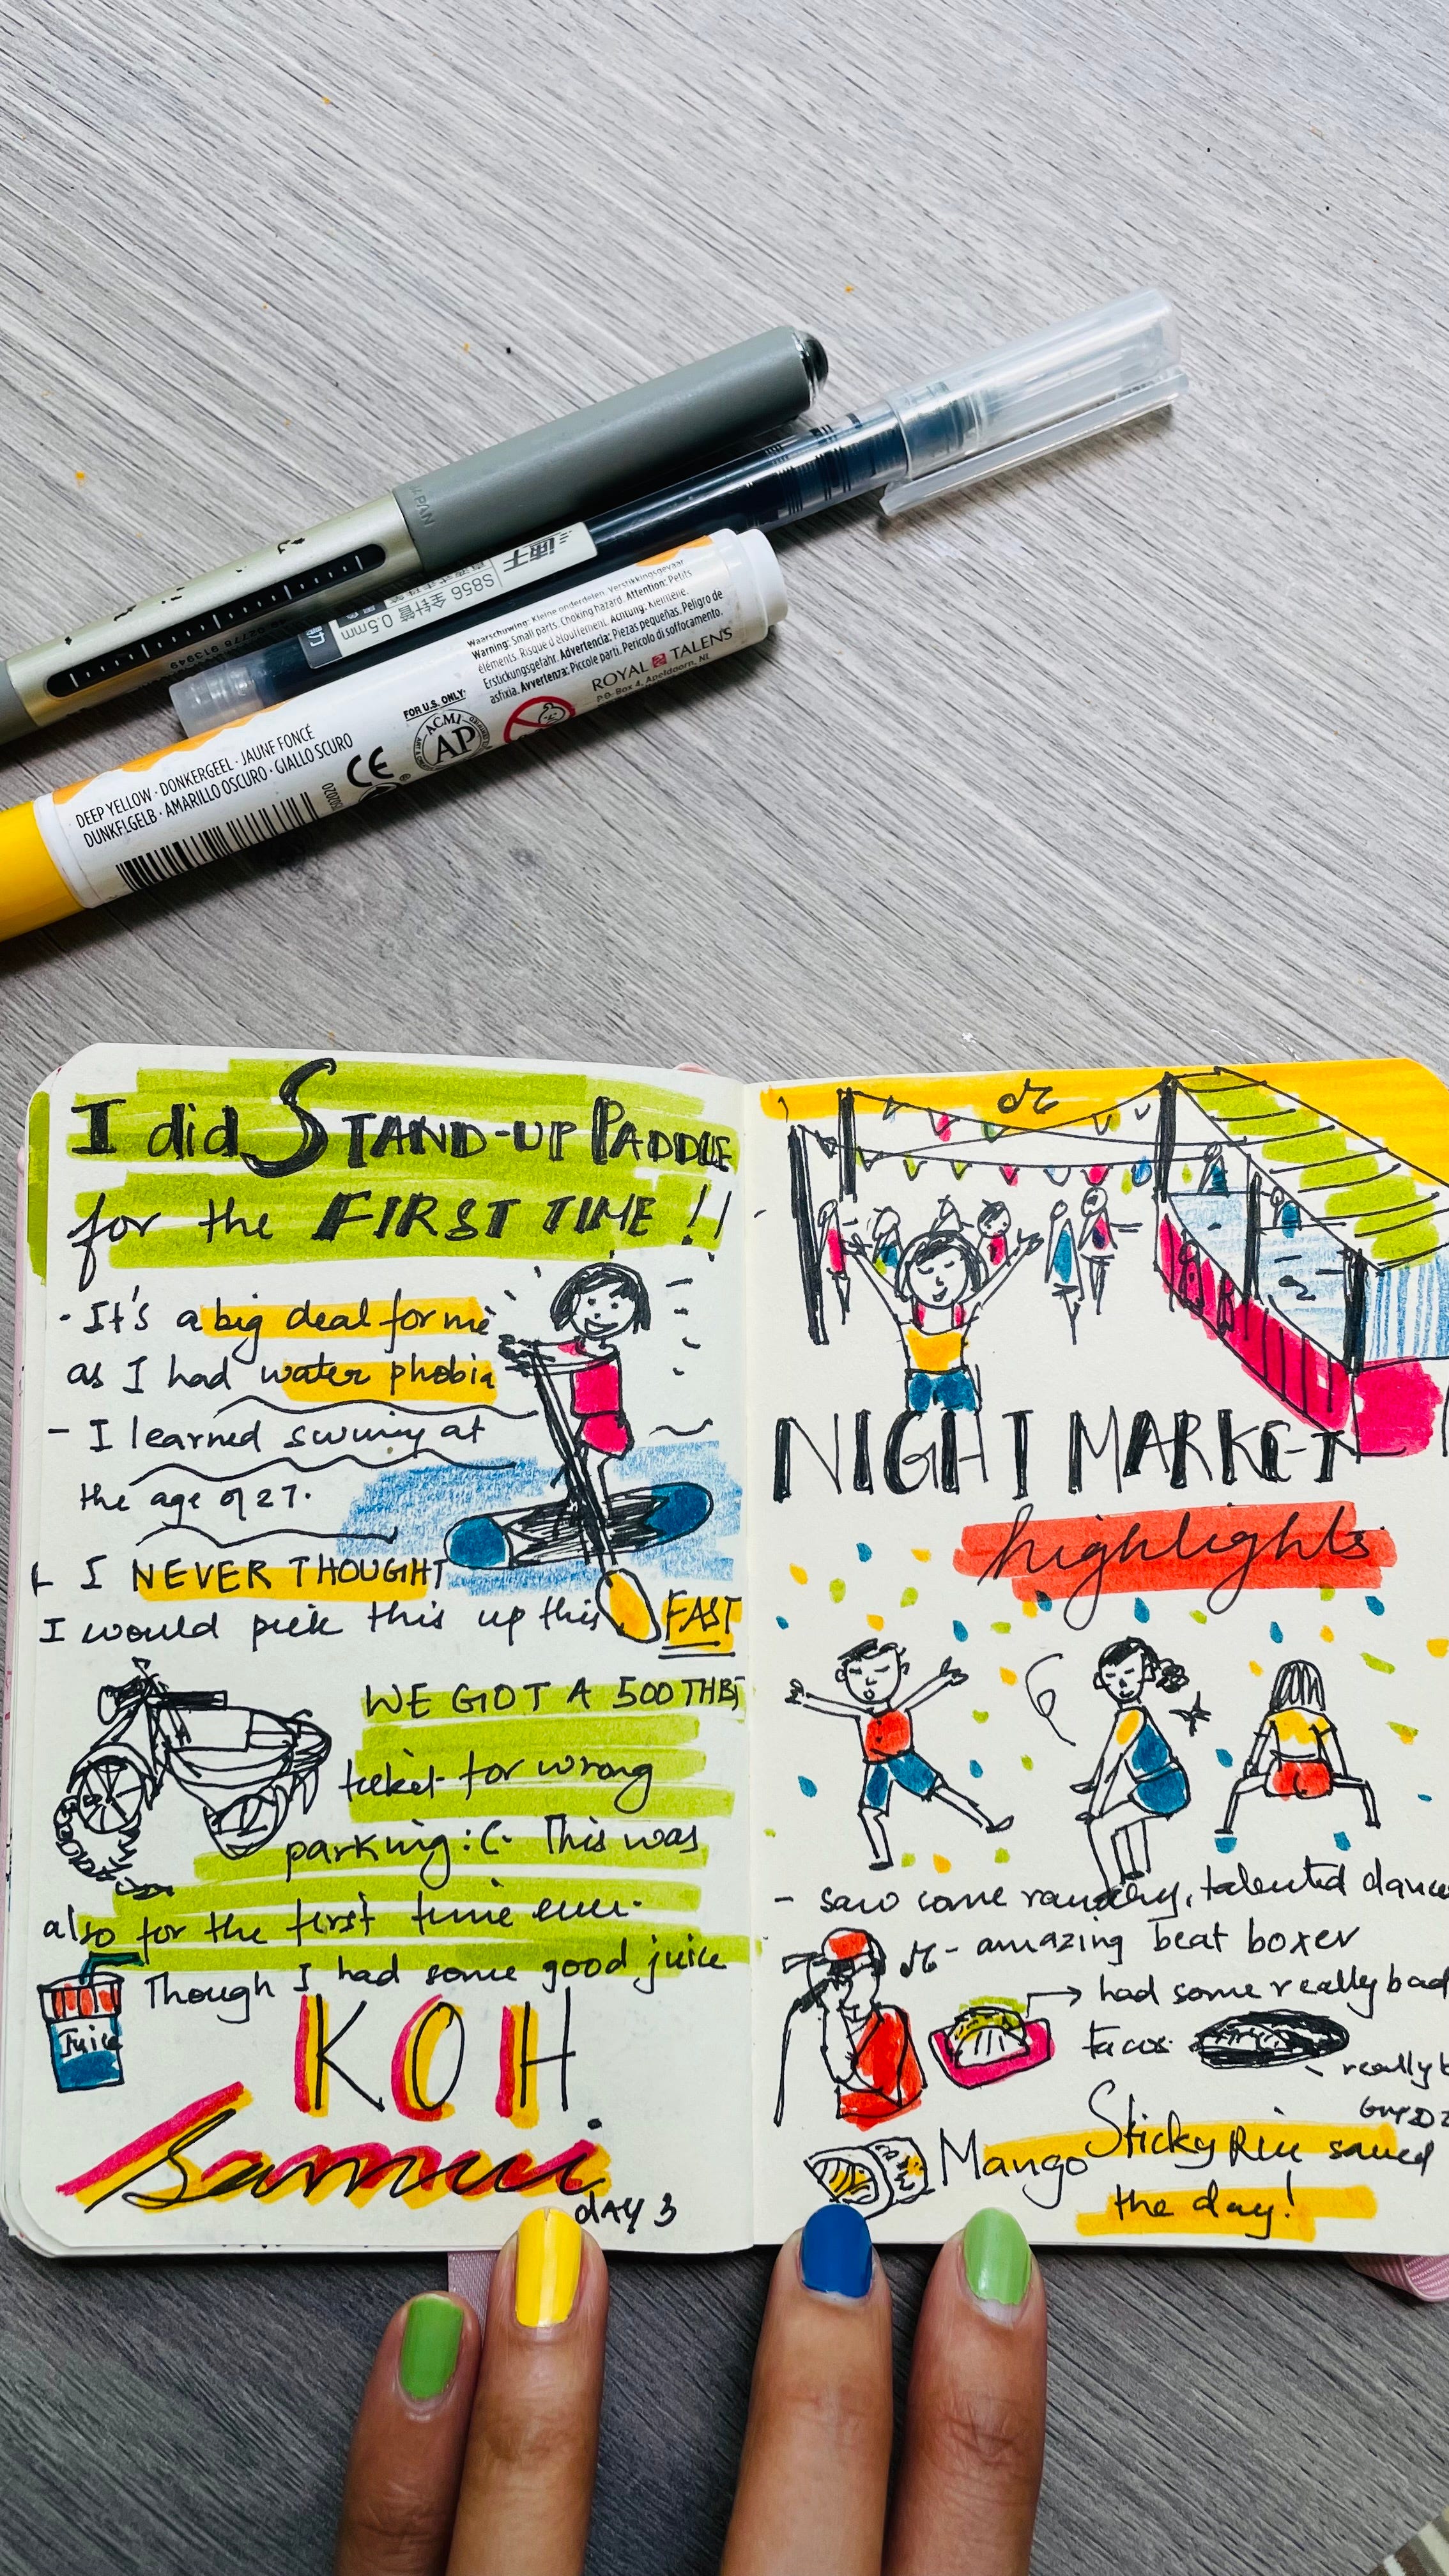 JAPAN
S856 全针管 0.5mm
Waarschuwing: Kleine onderdelen. Verstikkingsgevaar
Warning: Small parts. Choking hazard. Attention: Petits
éléments. Risque d'étouffement. Achtung: Kleinteile.
Erstickungsgefahr. Advertencia: Piezas pequeñas. Peligro de
asfixia. Avvertenza: Piccole parti. Pericolo di soffocamento.
ROYAL TALENS
P.O. Box 4, Apeldoorn, NL
FOR U.S. ONLY:
ACMI
AP
CE
DEEP YELLOW · DONKERGEEL · JAUNE FONCÉ
DUNKELGELB · AMARILLO OSCURO · GIALLO SCURO
I did STAND-UP PADDLE
for the FIRST TIME !!
- It's a big deal for me
as I had water phobia
- I learned swimg at
the age of 27.
I NEVER THOUGHT
I would pick this up this FAST
WE GOT A 500 THB
ticket for wrong
parking :(. This was
also for the first time ever.
Though I had some good juice
Juice
KOH
Samui
DAY 3
NIGHT MARKET
highlights
- saw some raunchy, talented dance
- amazing beat boxer
→ had some really bad
tacos.
really
Mango Sticky Rice saved
the day!